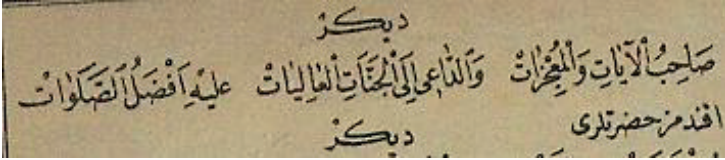 ديكر
صَاحِبُ اْلآيَاتِ وَالْمُعْجِزَاتْ وَالدَّاعِى اِلَى الْجَنَّاتِ الْعَالِيَاتْ عَلَيْهِ اَفْضَلُ الصَّلَوَاتْ
افندمز حضرتلرى
ديكر